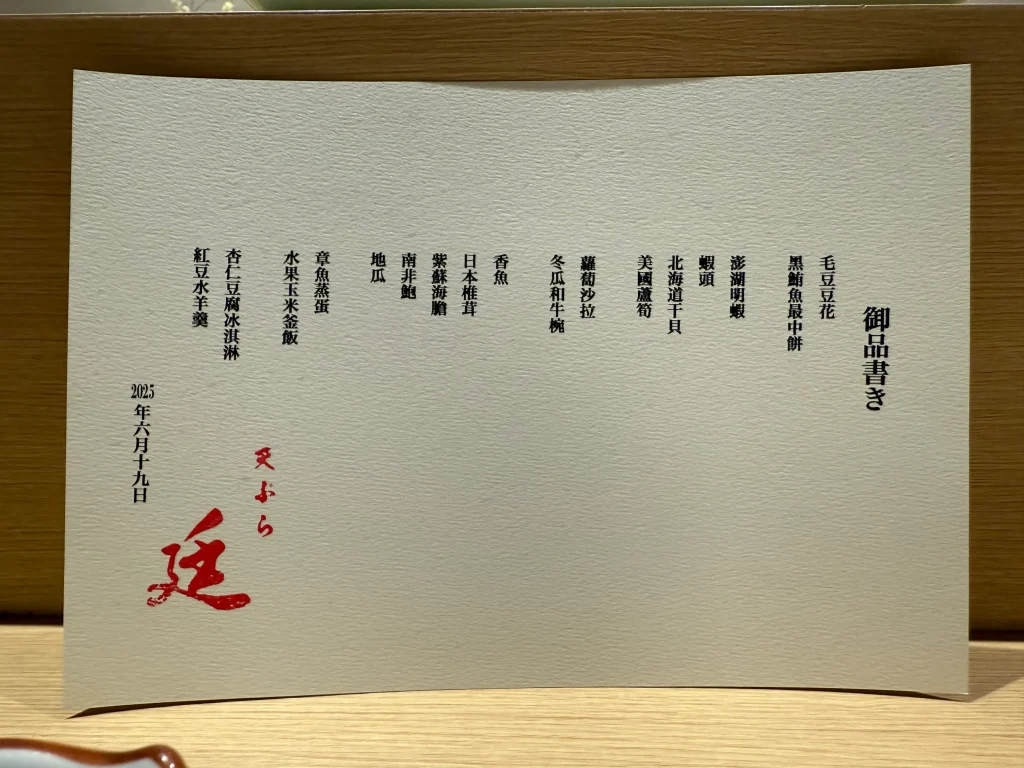 御品書き
毛豆豆花
黑鮪魚最中餅
澎湖明蝦
蝦頭
北海道干貝
美國蘆筍
蘿蔔沙拉
冬瓜和牛椀
香魚
日本椎茸
紫蘇海膽
南非鮑
地瓜
章魚蒸蛋
水果玉米釜飯
杏仁豆腐冰淇淋
紅豆水羊羹
天ぷら
廷
2025年六月十九日